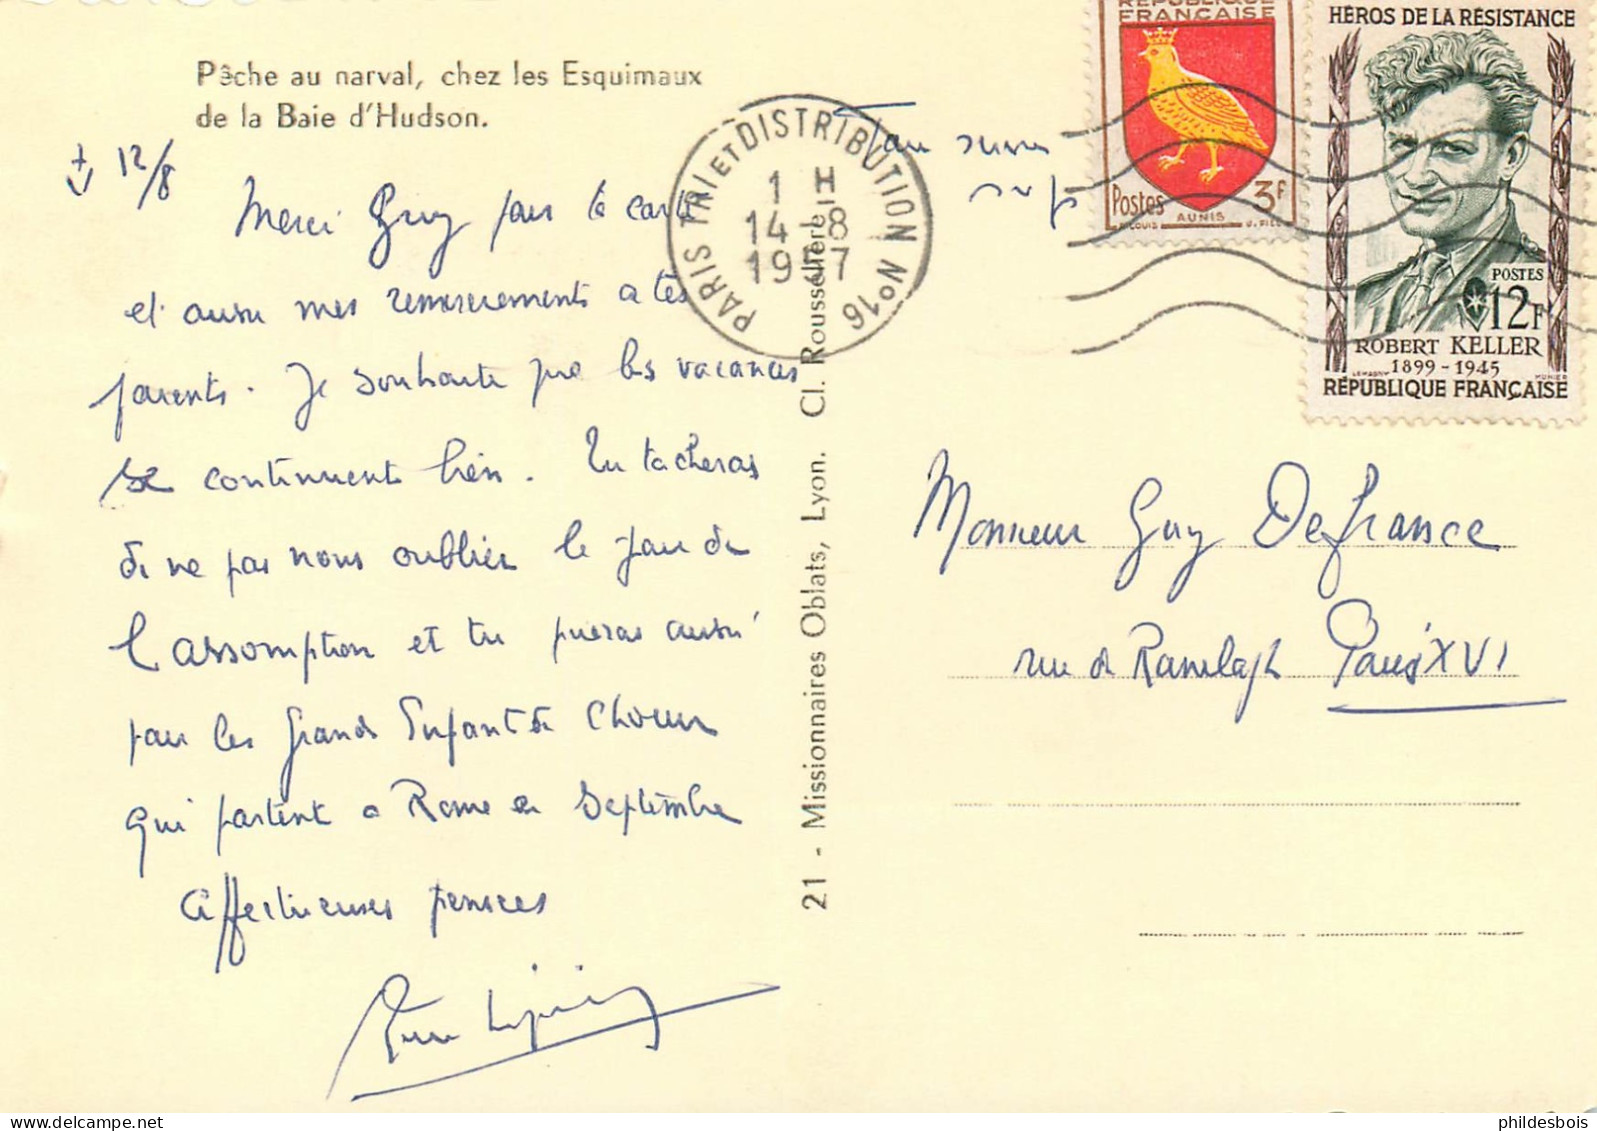 Pêche au narval, chez les Esquimaux
de la Baie d'Hudson.
12/8
Merci Guy pour la carte
et aussi mes remerciements à tes
parents. Je souhaite que les vacances
se continuent bien. Tu tacheras
de ne pas nous oublier le jour de
l'assomption et tu prieras aussi
pour les grands Enfants de Chœur
qui partent à Rome en Septembre
Affectueuses pensées
21 - Missionnaires Oblats, Lyon. Cl. Rousselière
PARIS TRI ET DISTRIBUTION N°16
1 H
14 - 8
1957
faire suivre
s v p
RÉPUBLIQUE
FRANÇAISE
Postes 3F
AUNIS
HÉROS DE LA RÉSISTANCE
POSTES
12F
ROBERT KELLER
1899 - 1945
RÉPUBLIQUE FRANÇAISE
Monsieur Guy Defrance
rue de Ranelagh Paris XVI
phildesbois